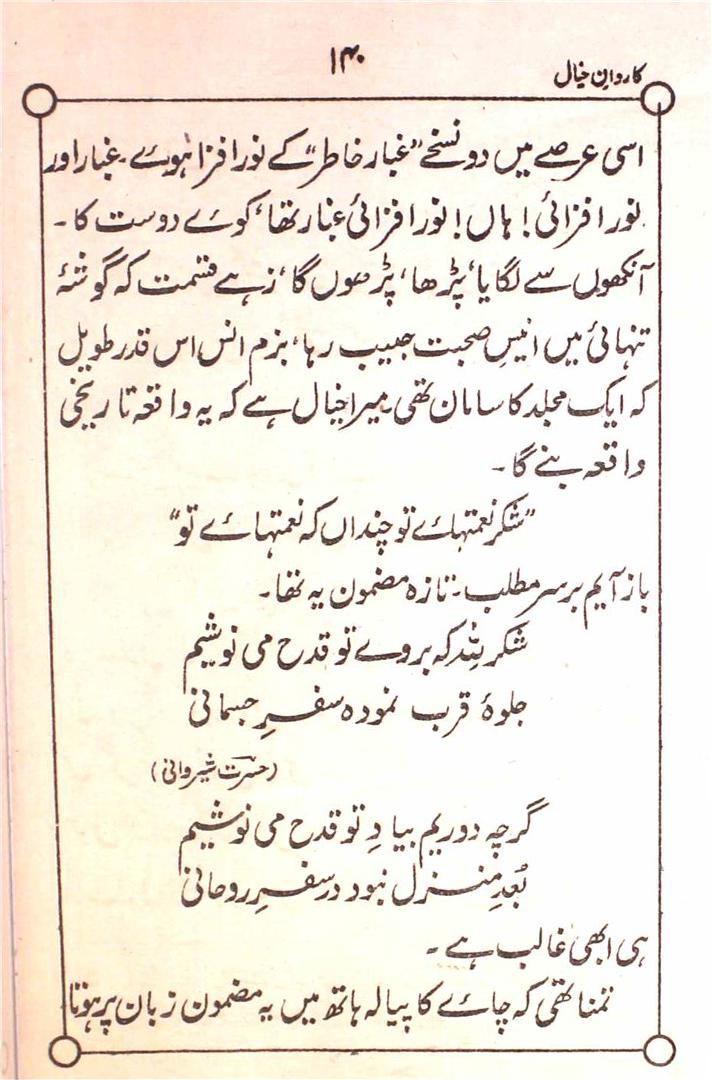 ۱۴۰
کاروانِ خیال
اسی عرصے میں دو نسخے "غبار خاطر" کے نور افزا ہوے۔ غبار اور
نور افزائی! ہاں! نور افزائی غبار تھا، کوے دوست کا۔
آنکھوں سے لگایا، پڑھا، پڑھوں گا، زہے قسمت کہ گوشۂ
تنہائی میں انیسِ صحبت حبیب رہا، بزم انس اس قدر طویل
کہ ایک مجلد کا سامان تھی، میرا خیال ہے کہ یہ واقعہ تاریخی
واقعہ بنے گا۔
"شکر نعمتہاے تو چنداں کہ نعمتہاے تو"
باز آیم بر سر مطلب۔ تازہ مضمون یہ تھا۔
شکر للہ کہ بروے تو قدح می نوشیم
جلوۂ قرب نمودہ سفرِ جسمانی
(حسرت شیروانی)
گرچہ دوریم بیادِ تو قدح می نوشیم
بُعدِ منزل نبود در سفرِ روحانی
ہی ابھی غالب ہے۔
تمنا تھی کہ چاے کا پیالہ ہاتھ میں یہ مضمون زبان پر ہوتا